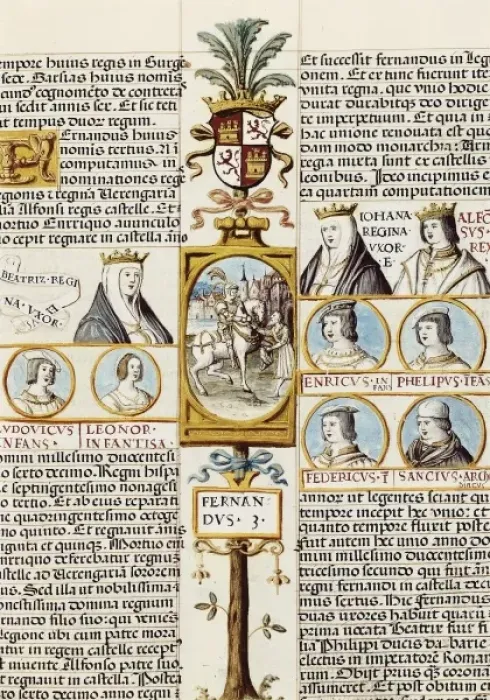 tempore huius regis in Burge
sede. Garsias huius nominis
et tempus duorum regum.
Ernandus huius
nomis tertius. A i
computamus in
nominationes rege
legionis et regina Verengaria
lia Alfonsi regis castelle. Et
mortuo Enrriquo avunculo
uo cepit regnare in castella año
BEATRIZ · REGI
NA · VXOR ·
EI
LVDOVICVS
INFANS ·
LEONOR ·
INFANTISA ·
omini millesimo ducentesi
o serto decimo. Regni hispa
e septingentesimo nonagesi
o tertio. Et ab eius reparati
e quadringentesimo octoge
mo quinto. Et regnauit annis
iginta et quinqȝ. Mortuo eni
nrriquo deferebatur regnuȝ
astelle ad Verengariā sororem
us. Sed illa ut nobilissima
onestissima domina regnum
nando filio suo: qui veniēs
legione ubi cum patre mora
atur in regem castelle recept
t muente Alfonso patre suo
t regnauit in castella. Postea
serto decimo anno regni
FERNAN-
DVS · 3 ·
Et successit fernandus in leg
onem. Et ex tunc fuerunt ite
vnita regna. que vnio hodie
durat durabitqȝ deo dirige
te imperpetuum. Et quia in
hac unione renouata est quo
dam modo monarchia: Arm
regia mixta sunt ex castellis
leonibus. Ideo incipimus e
ca quartam computationem
IOHANA ·
REGINA ·
VXOR
· E ·
ALFŌ
SVS ·
REX
ENRICVS · IN
FANS
PHELIPVS · IFAS
FEDERICVS · Ī
SANCIVS · ARO
DIACVS
annor ut legentes sciant qu
tempore incepit hec vnio: et
quanto tempore fluxit poste
fuit autem hec unio anno do
mini millesimo ducentesimo
tricesimo secundo qui fuit an
regni fernandi in castella deci
mus sertus. Hic fernandus
duas uxores habuit quarū
prima vocata Beatrix fuit fi
lia Philippi ducis de barie
electus in imperatorē Roman
Obijt prius qȝ corona